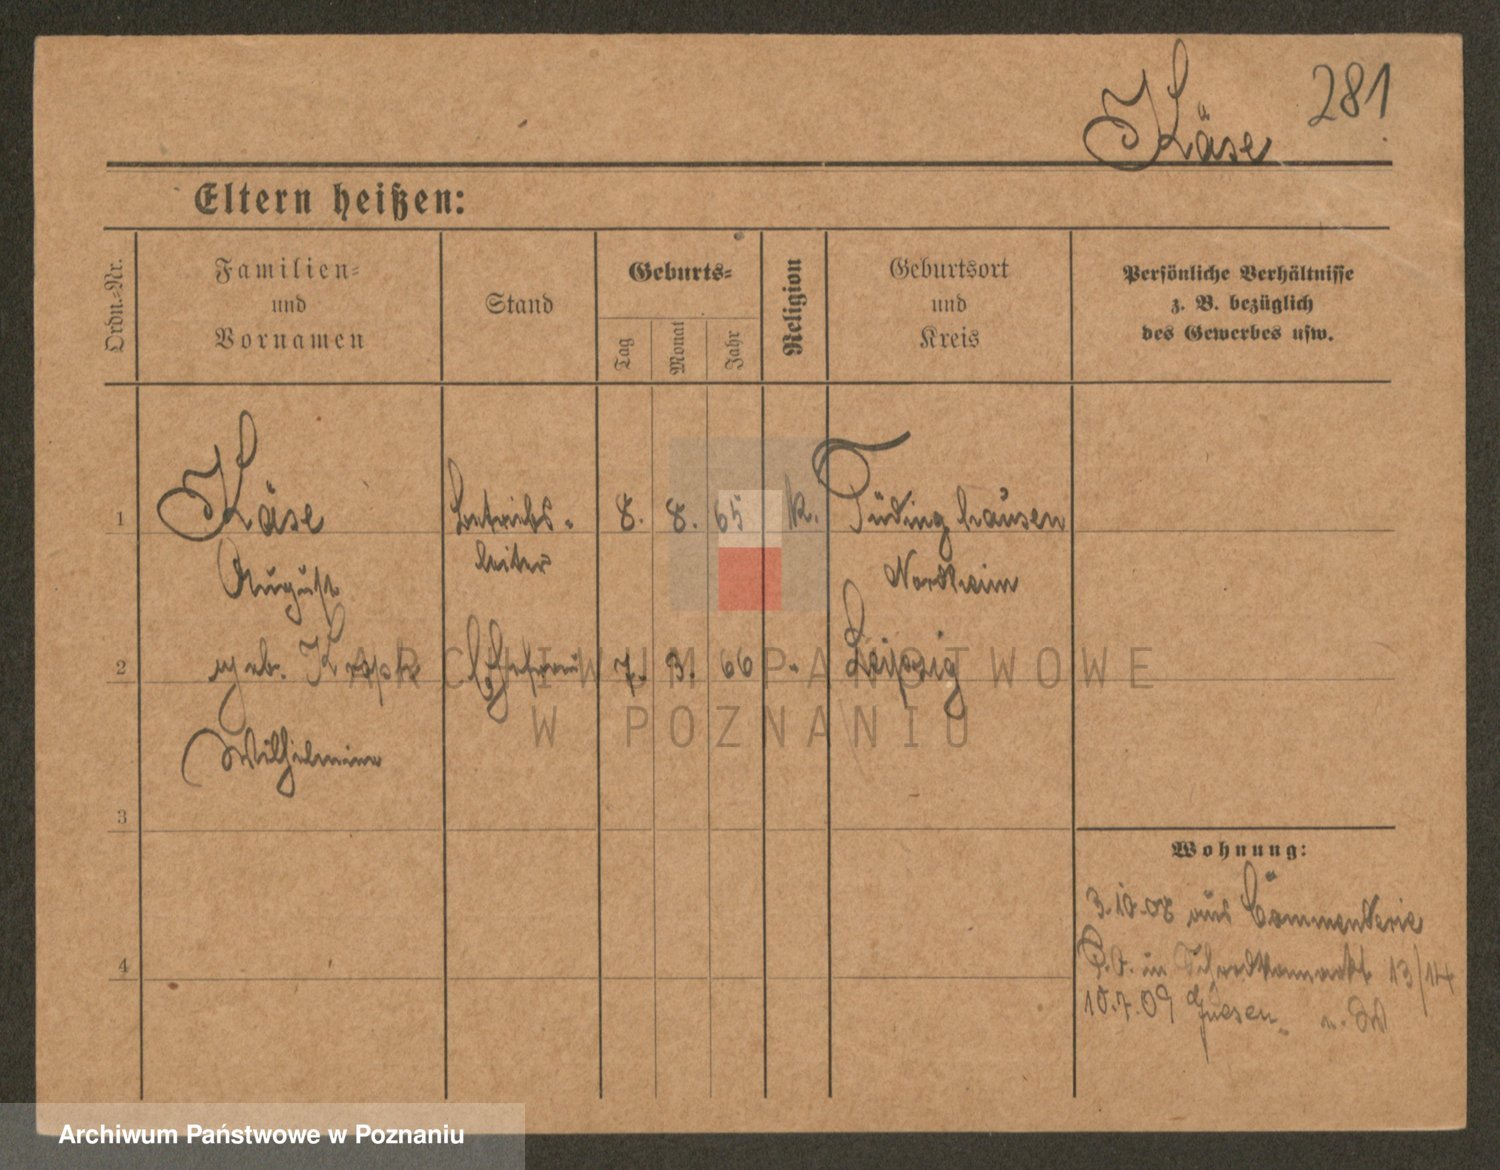 Käse 281
Eltern heißen:
Ordn.-Nr.
Familien-
und
Vornamen
Stand
Geburts-
Tag
Monat
Jahr
Religion
Geburtsort
und
Kreis
Persönliche Verhältnisse
z. B. bezüglich
des Gewerbes usw.
1 Käse Betriebs- 8. 8. 65 k. Tüdinghausen
August leiter Northeim
2 geb. Ehefrau 7. 3. 66 " Leipzig
Wilhelmine
3
4
Wohnung:
3.10.08 aus Commenderie
P.O. in 13/14
10.7.09 Gnesen
ARCHIWUM PAŃSTWOWE
W POZNANIU
Archiwum Państwowe w Poznaniu